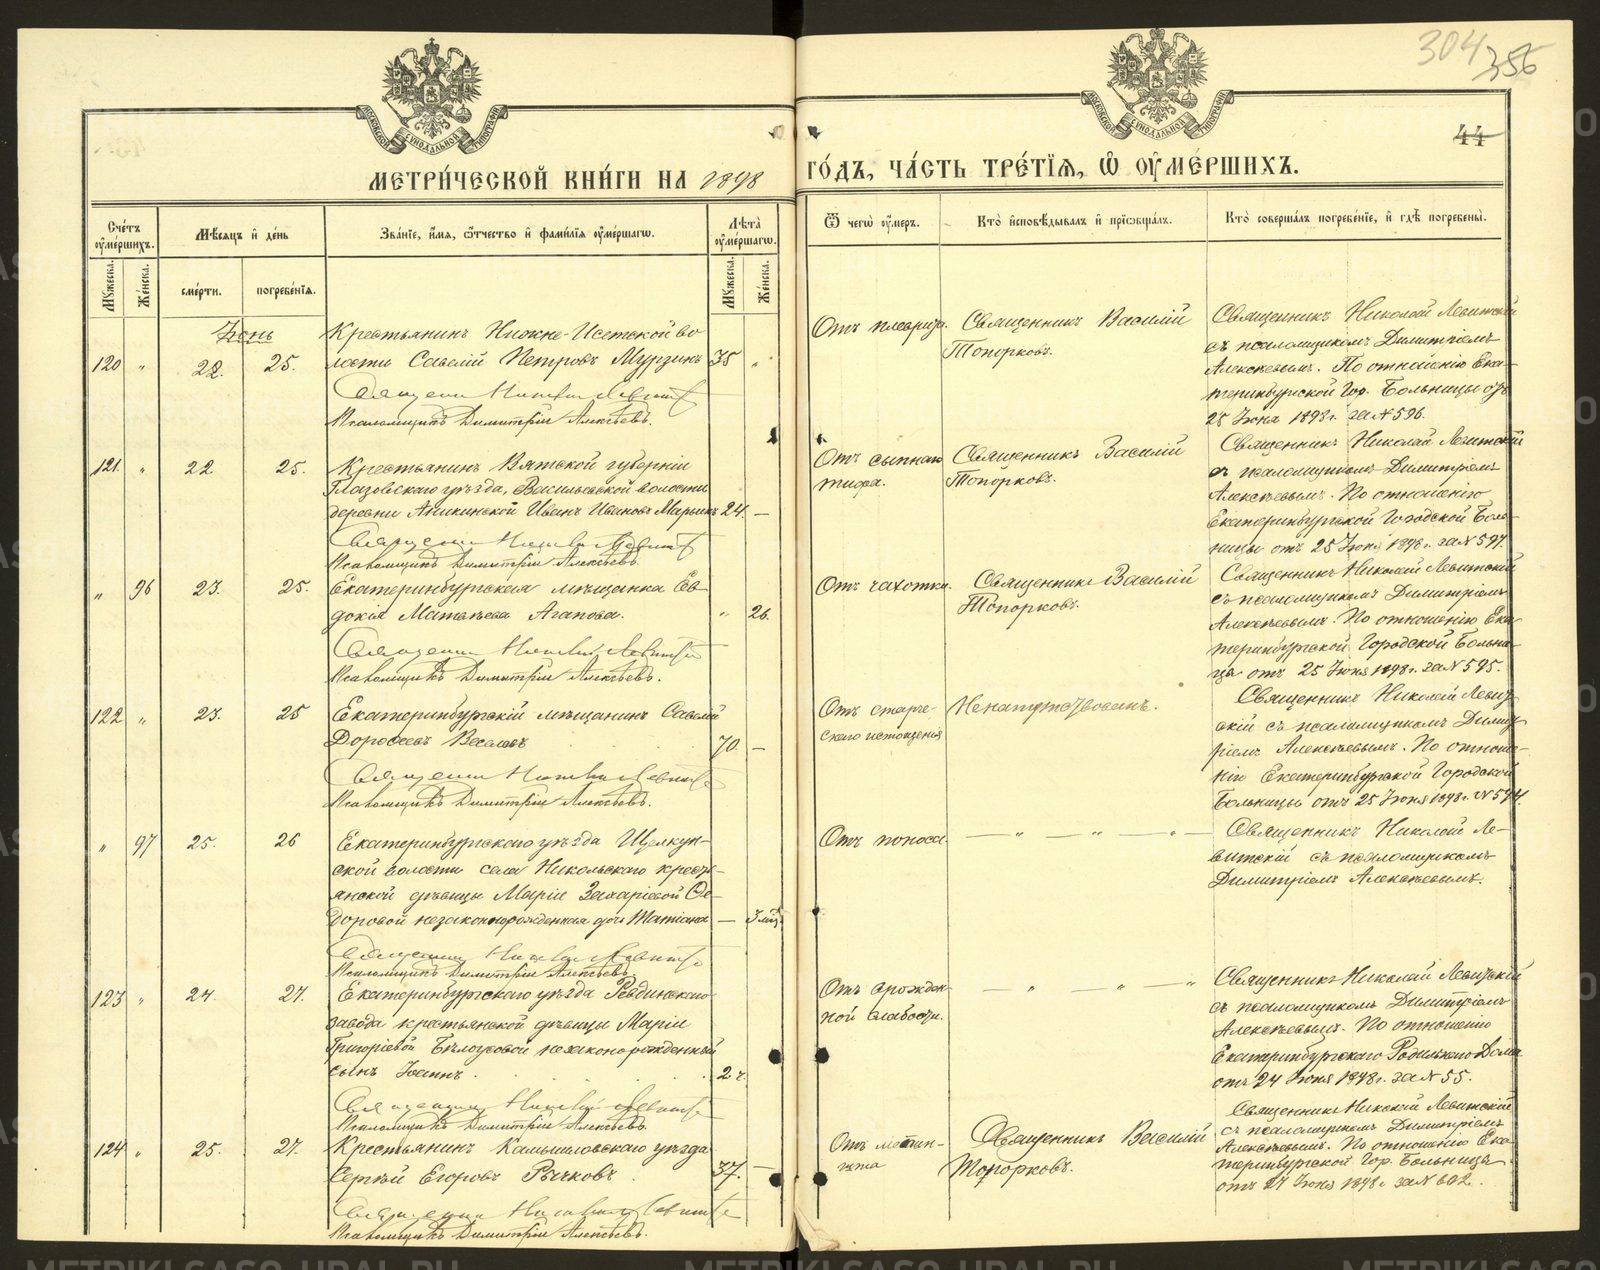 304
356
44
МОСКОВСКОЙ СѴНОДАЛЬНОЙ ТИПОГРАФІИ
МОСКОВСКОЙ СѴНОДАЛЬНОЙ ТИПОГРАФІИ
МЕТРИ́ЧЕСКОЙ КНИ́ГИ НА 1898
ГО́ДЪ, ЧА́СТЬ ТРЕ́ТІѦ, Ѽ ОУ҆МЕ́РШИХЪ.
Сче́тъ оу҆ме́ршихъ.
Мѣ́сѧцъ и҆ де́нь
Зва́нїе, и҆́мѧ, ѻ҆́тчество и҆ фами́лїѧ оу҆ме́ршагѡ.
Лѣ́та̀ оу҆ме́ршагѡ.
Ѿ чегѡ̀ оу҆́меръ.
Кто̀ и҆сповѣ́дывалъ и҆ прїѡбща́лъ.
Кто̀ соверша́лъ погребе́нїе, и҆ гдѣ̀ погребены̀.
Мꙋ́жеска.
Же́нска.
сме́рти.
погребе́нїѧ.
Мꙋ́жеска.
Же́нска.
Іюнь
120 " 22. 25.
Крестьянинъ Нижне-Исетской во-
лости Савелій Петровъ Мурзинъ 75 "
Священникъ Николай Левитскій
Псаломщикъ Димитрій Алексѣевъ.
Отъ плеврита.
Священникъ Василій
Топорковъ.
Священникъ Николай Левитскій
съ псаломщикомъ Димитріемъ
Алексѣевымъ. По отношенію Ека-
теринбургской Гор. Больницы отъ
25 Іюня 1898 г. за № 596.
121. " 22 25.
Крестьянинъ Вятской губерніи
Глазовскаго уѣзда, Васильевской волости
деревни Аникинской Иванъ Ивановъ Марьинъ 24. —
Священникъ Николай Левитскій
Псаломщикъ Димитрій Алексѣевъ.
Отъ сыпнаго
тифа.
Священникъ Василій
Топорковъ.
Священникъ Николай Левитскій
съ псаломщикомъ Димитріемъ
Алексѣевымъ. По отношенію
Екатеринбургской Городской Боль-
ницы отъ 25 Іюня 1898 г. за № 597.
" 96 23. 25.
Екатеринбургская мѣщанка Ев-
докія Матвѣева Агапова. " 26.
Священникъ Николай Левитскій
Псаломщикъ Димитрій Алексѣевъ.
Отъ чахотки.
Священникъ Василій
Топорковъ.
Священникъ Николай Левитскій
съ псаломщикомъ Димитріемъ
Алексѣевымъ. По отношенію Ека-
теринбургской Городской Больни-
цы отъ 25 Іюня 1898 г. за № 595.
122 " 23. 25
Екатеринбургскій мѣщанинъ Савелій
Дорофеевъ Веселовъ 70. —
Священникъ Николай Левитскій
Псаломщикъ Димитрій Алексѣевъ.
Отъ старче-
скаго истощенія
Ненапутствованъ.
Священникъ Николай Левит-
скій съ псаломщикомъ Димит-
ріемъ Алексѣевымъ. По отноше-
нію Екатеринбургской Городской
Больницы отъ 25 Іюня 1898 г. № 594.
" 97 25. 26
Екатеринбургскаго уѣзда Щелкун-
ской волости села Никольскаго кресть-
янской дѣвицы Маріи Захаріевой Ѳе-
доровой незаконнорожденная дочь Татіана — 3 мѣс.
Священникъ Николай Левитскій
Псаломщикъ Димитрій Алексѣевъ
Отъ поноса
— " — " — " —
Священникъ Николай Ле-
витскій съ псаломщикомъ
Димитріемъ Алексѣевымъ.
123 " 24. 27.
Екатеринбургскаго уѣзда Ревдинскаго
завода крестьянской дѣвицы Маріи
Григоріевой Бѣлоусовой незаконорожденный
сынъ Іоаннъ. 2 ч.
Священникъ Николай Левитскій
Псаломщикъ Димитрій Алексѣевъ.
Отъ врожден-
ной слабости.
— " — " — "
Священникъ Николай Левитскій
съ псаломщикомъ Димитріемъ
Алексѣевымъ. По отношенію
Екатеринбургскаго Родильнаго Дома
отъ 24 Іюня 1898 г. за № 55.
124 " 25. 27.
Крестьянинъ Камышловскаго уѣзда
Сергѣй Егоровъ Рычковъ 37. —
Священникъ Николай Левитскій
Псаломщикъ Димитрій Алексѣевъ.
Священникъ Василій
Топорковъ.
Священникъ Николай Левитскій
съ псаломщикомъ Димитріемъ
Алексѣевымъ. По отношенію Ека-
теринбургской Гор. Больницы
отъ 27 Іюня 1898 г. за № 602.